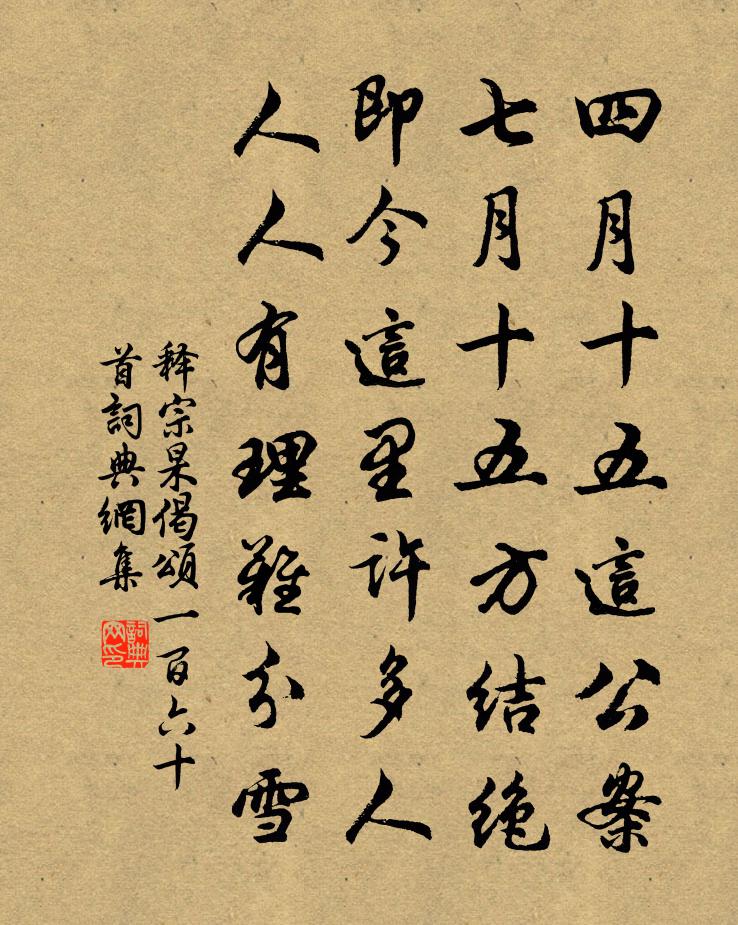 四月十五這公案
七月十五方結絶
即今這里許多人
人人有理難分雪
释宗杲偈頌一百六十
首詞典網集
詞典
网印